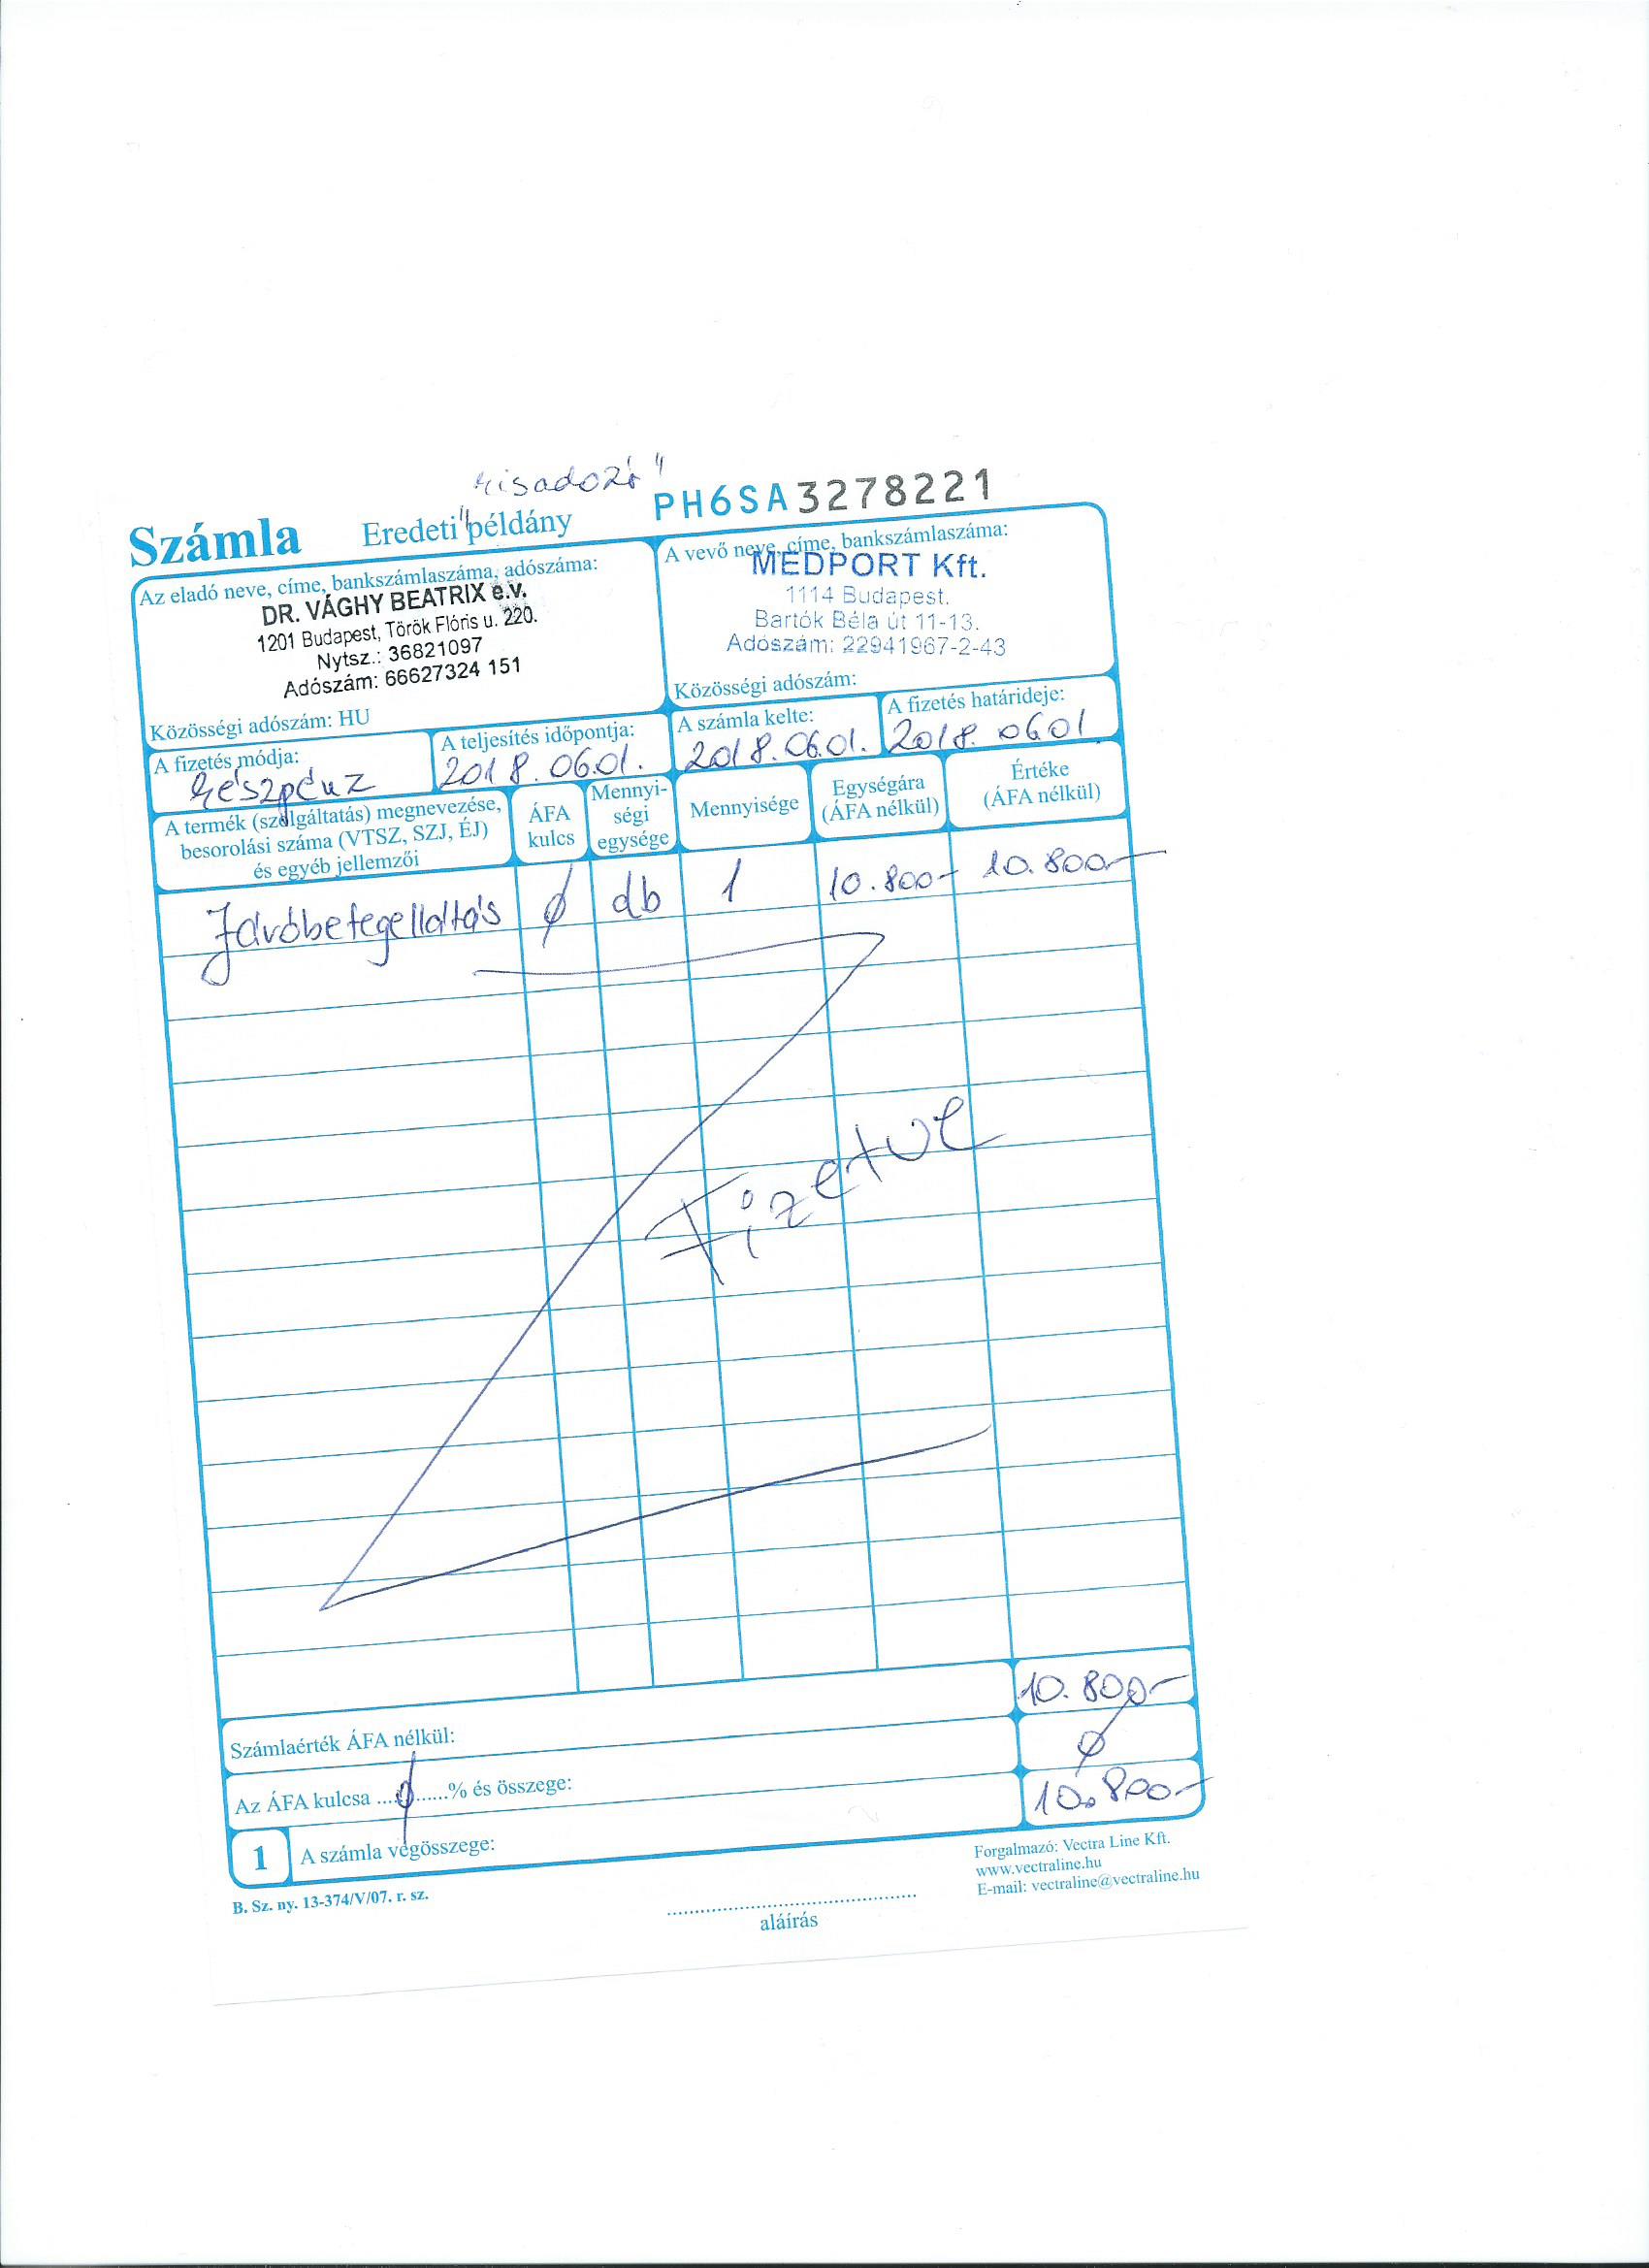 „Kisadozó"
Számla Eredeti példány PH6SA3278221
Az eladó neve, címe, bankszámlaszáma, adószáma:
DR. VÁGHY BEATRIX e.v.
1201 Budapest, Török Flóris u. 220.
Nytsz.: 36821097
Adószám: 66627324 151
Közösségi adószám: HU
A vevő neve, címe, bankszámlaszáma:
MEDPORT Kft.
1114 Budapest.
Bartók Béla út 11-13.
Adószám: 22941967-2-43
Közösségi adószám:
A fizetés módja:
Készpénz
A teljesítés időpontja:
2018.06.01.
A számla kelte:
2018.06.01.
A fizetés határideje:
2018.06.01
A termék (szolgáltatás) megnevezése,
besorolási száma (VTSZ, SZJ, ÉJ)
és egyéb jellemzői
ÁFA
kulcs
Mennyi-
ségi
egysége
Mennyisége
Egységára
(ÁFA nélkül)
Értéke
(ÁFA nélkül)
Járóbetegellátás Ø db 1 10.800- 10.800-
Fizetve
Számlaérték ÁFA nélkül: 10.800-
Az ÁFA kulcsa ....Ø......% és összege: Ø
1 A számla végösszege: 10.800-
B. Sz. ny. 13-374/V/07. r. sz.
aláírás
Forgalmazó: Vectra Line Kft.
www.vectraline.hu
E-mail: vectraline@vectraline.hu